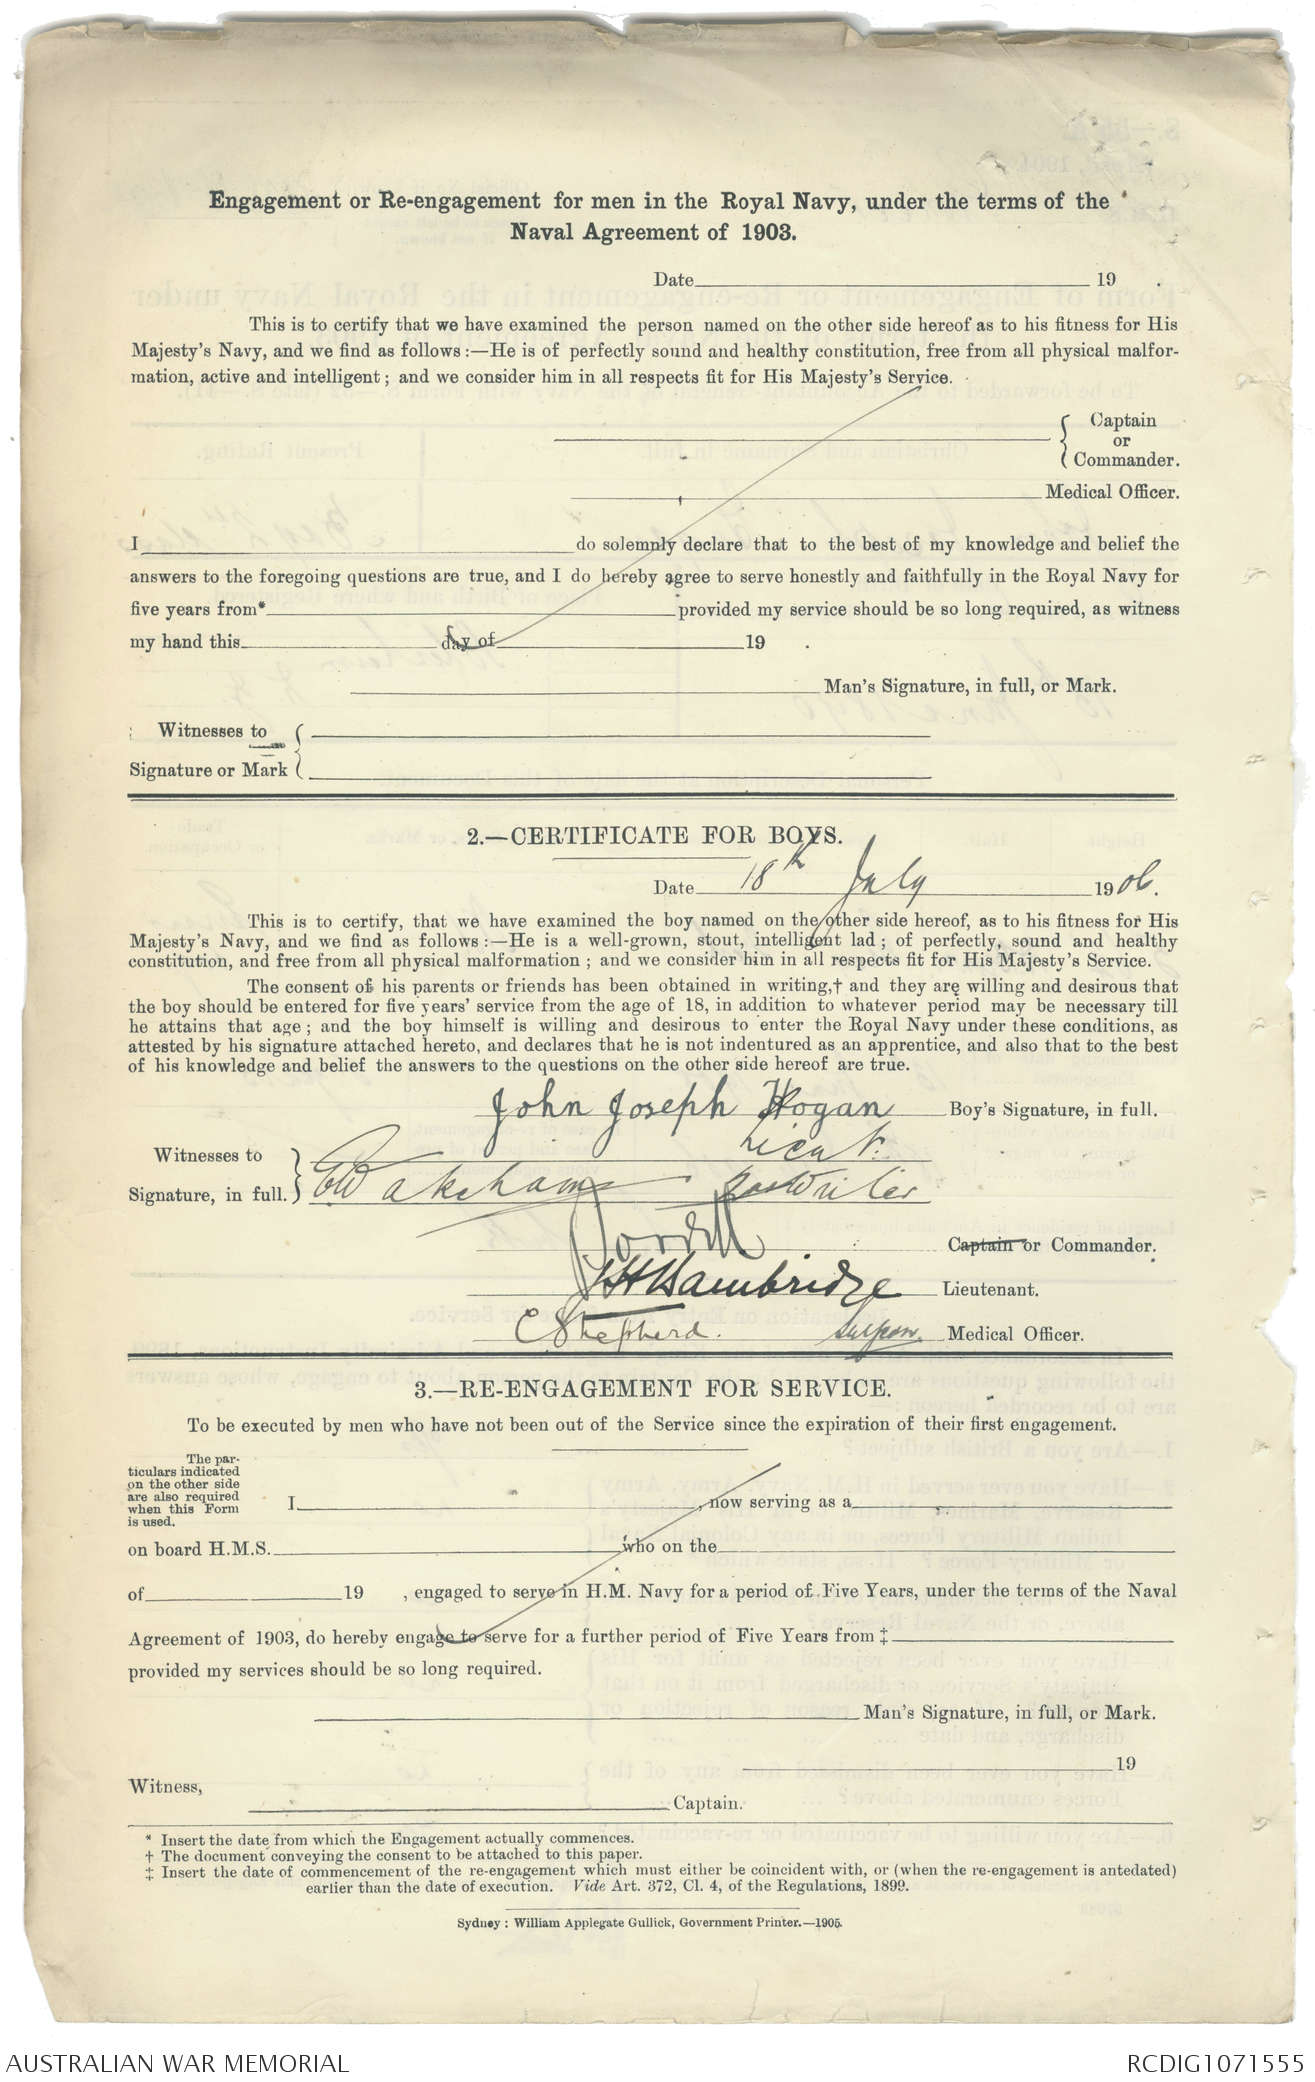 Engagement or Re-engagement for men in the Royal Navy, under the terms of the
Naval Agreement of 1903.
Date 19
This is to certify that we have examined the person named on the other side hereof as to his fitness for His
Majesty's Navy, and we find as follows:—He is of perfectly sound and healthy constitution, free from all physical malfor-
mation, active and intelligent; and we consider him in all respects fit for His Majesty's Service.
Captain
or
Commander.
Medical Officer.
I do solemnly declare that to the best of my knowledge and belief the
answers to the foregoing questions are true, and I do hereby agree to serve honestly and faithfully in the Royal Navy for
five years from* provided my service should be so long required, as witness
my hand this day of 19 .
Man's Signature, in full, or Mark.
Witnesses to
Signature or Mark
2.—CERTIFICATE FOR BOYS.
Date 18th July 1906.
This is to certify, that we have examined the boy named on the other side hereof, as to his fitness for His
Majesty's Navy, and we find as follows:—He is a well-grown, stout, intelligent lad; of perfectly sound and healthy
constitution, and free from all physical malformation; and we consider him in all respects fit for His Majesty's Service.
The consent of his parents or friends has been obtained in writing,† and they are willing and desirous that
the boy should be entered for five years' service from the age of 18, in addition to whatever period may be necessary till
he attains that age; and the boy himself is willing and desirous to enter the Royal Navy under these conditions, as
attested by his signature attached hereto, and declares that he is not indentured as an apprentice, and also that to the best
of his knowledge and belief the answers to the questions on the other side hereof are true.
John Joseph Hogan Boy's Signature, in full.
Witnesses to Lieut.
Signature, in full. Wakeham Writer
Captain or Commander.
Bainbridge Lieutenant.
C Shepherd. Surgeon. Medical Officer.
3.—RE-ENGAGEMENT FOR SERVICE.
To be executed by men who have not been out of the Service since the expiration of their first engagement.
The par-
ticulars indicated
on the other side
are also required
when this Form
is used.
I , now serving as a
on board H.M.S. who on the
of 19 , engaged to serve in H.M. Navy for a period of Five Years, under the terms of the Naval
Agreement of 1903, do hereby engage to serve for a further period of Five Years from ‡
provided my services should be so long required.
Man's Signature, in full, or Mark.
19
Witness,
Captain.
* Insert the date from which the Engagement actually commences.
† The document conveying the consent to be attached to this paper.
‡ Insert the date of commencement of the re-engagement which must either be coincident with, or (when the re-engagement is antedated)
earlier than the date of execution. Vide Art. 372, Cl. 4, of the Regulations, 1899.
Sydney: William Applegate Gullick, Government Printer.—1905.
AUSTRALIAN WAR MEMORIAL
RCDIG1071555